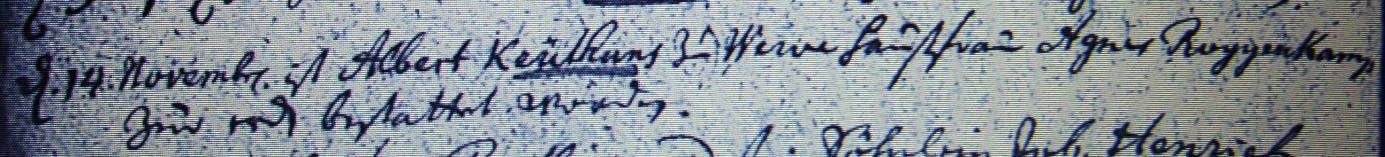 d. 14. Novembr. ist Albert Keuthans zu Werve Haußfrau Agnes Roggenkamp
zur erd bestattet worden.
Henrich